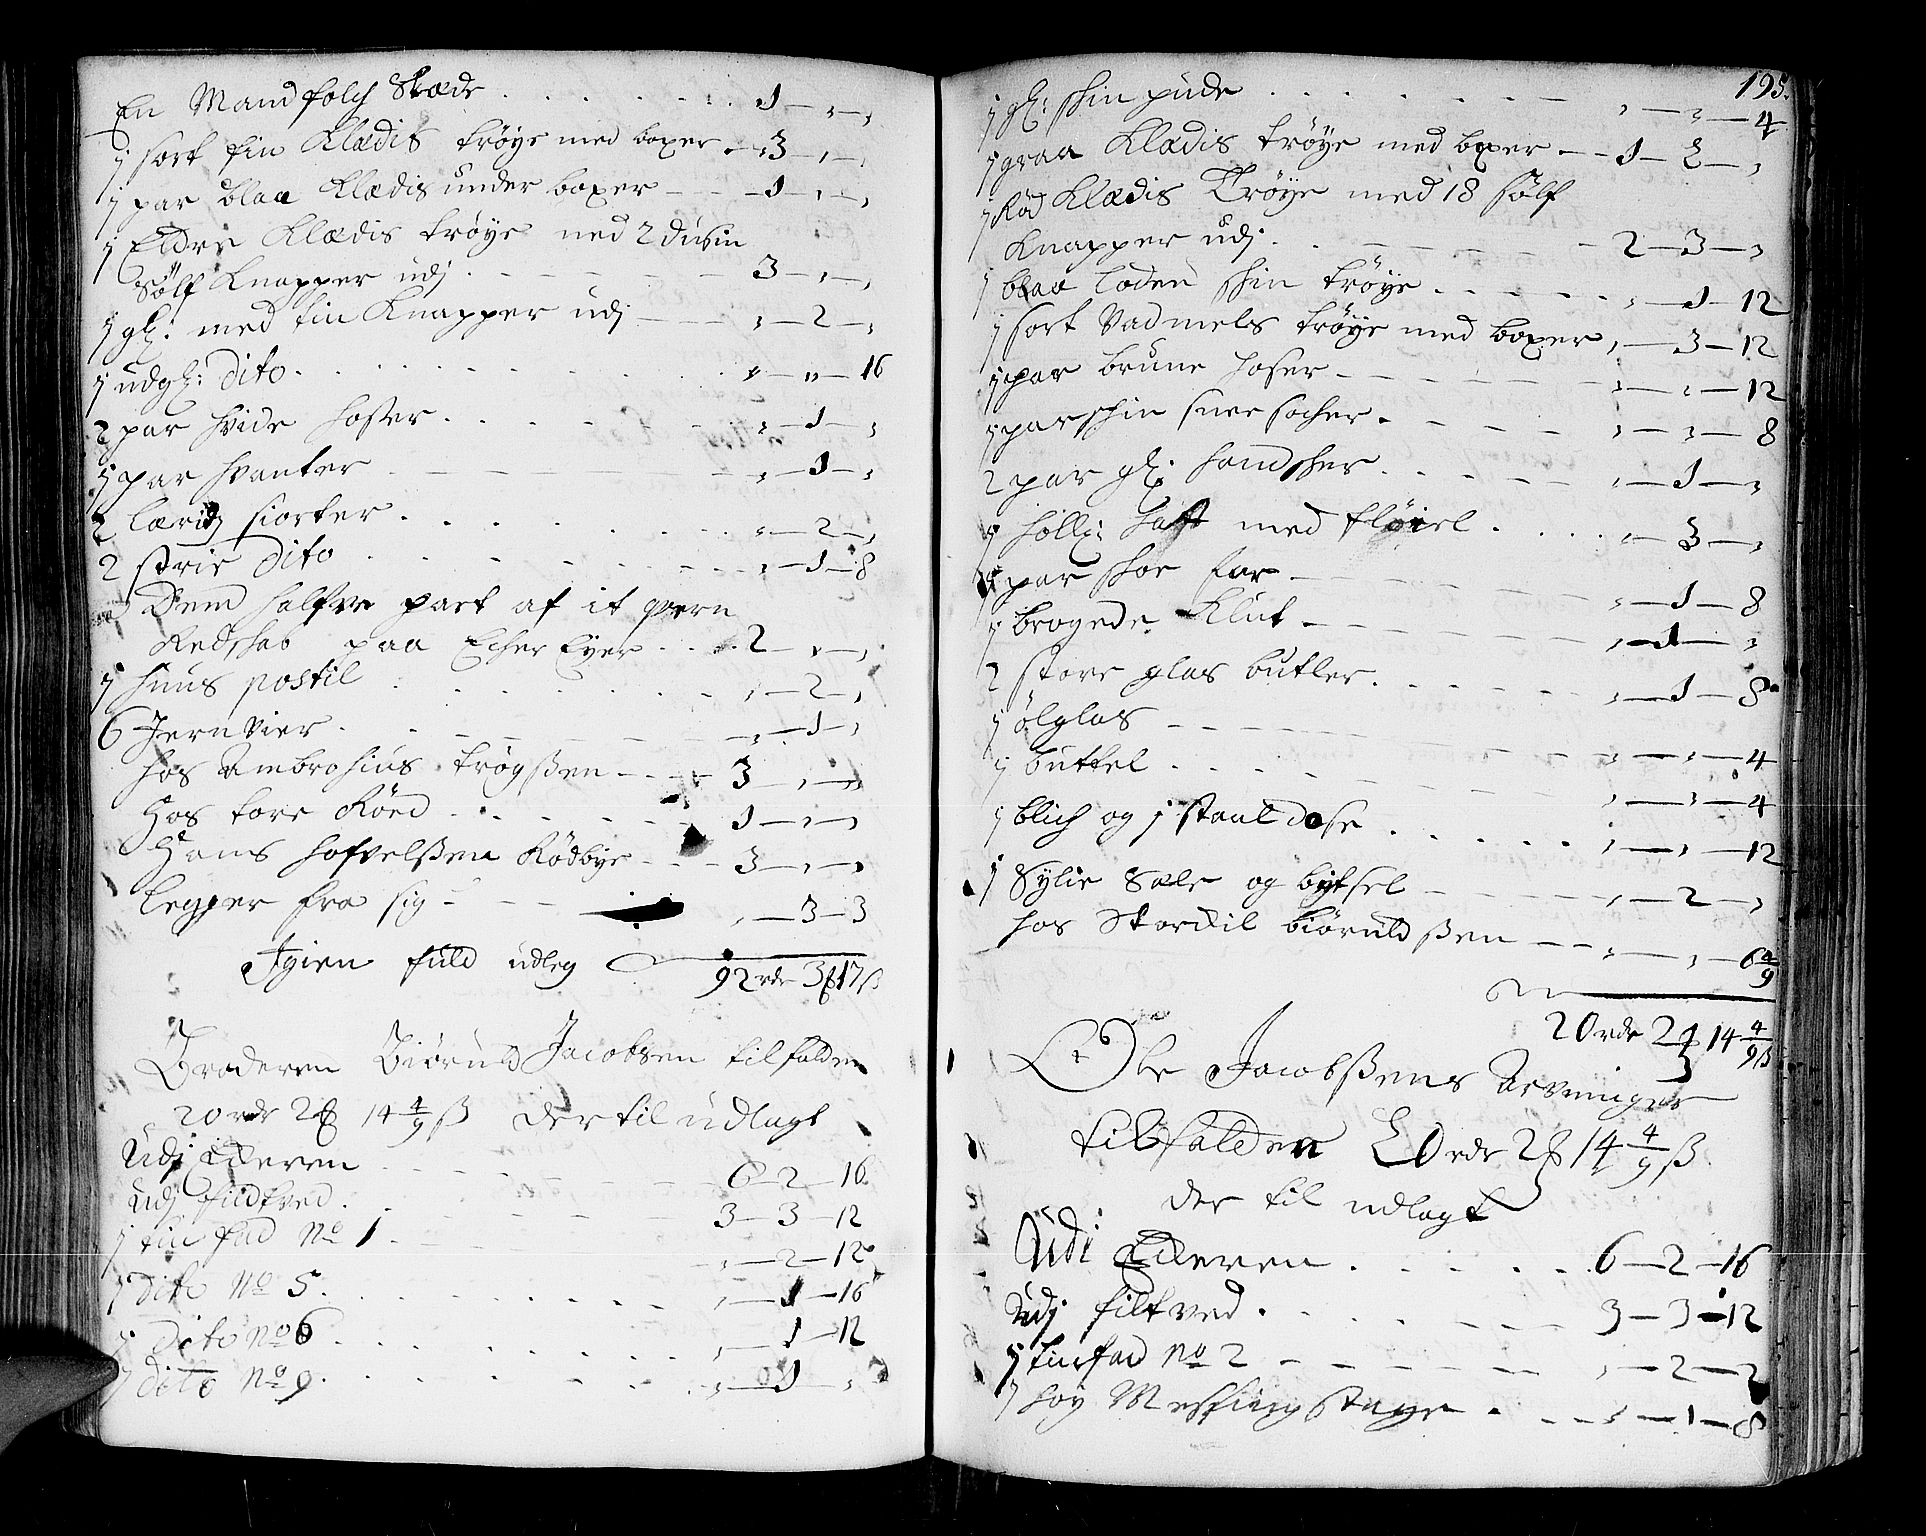 En Mandfolch Skæde . . . . . . 1 — „ — „
1 sort fin Klædis trøye med boxer . „ 3 — „ — „
1 par blaa Klædis under boxer — — 1 — „ — „
1 Eldre Klædis trøye med 2 dusin
Sølf Knapper udj . — — — — 3 — „ — „
1 gl: med tin Knapper udj — — „ — 2 — „
1 udgl: dito . . . . . . . „ — „ — 16
2 par hvide hoser . . . . . „ — 1 — „
1 par hvanter — — — — „ — 1 — „
2 lærids siorter . . . . . „ — 2 — „
2 strie dito . . . . . . „ — 1 — 8
Dend halfve part af it qvern
Redskab paa Echer Eyer . . . 2 — „ — „
1 huus postil . . . . . . „ — 2 — „
6 Jern vier . — — — — „ — 1 — „
hos Ambrosius trøgßen — — 3 — „ — „
Hos tore Röed . . . . . 1 — „ — „
Hans hofvelßen Rødbye — — 3 — „ — „
legger fra sig — — — „ — 3 — 3
Igien fuld udleg 92 rdr 3 ȼ 17 ß
Broderen Biøruld Jacobsen tilfalden
20 rdr 2 ȼ 14 4/9 ß der til udlagt
Udj Ederen . — — — — 6 — 2 — 16
Udj filtved . — — — — 3 — 3 — 12
1 tin fad No 1 . — — — „ — 2 — 12
1 dito No 5 . . . . . . „ — 1 — 16
1 dito No 6 . . . . . . „ — 1 — 12
1 dito No 9 . . . . . . „ — 1 — „
195.
1 gl: skin pude . . . . . . „ — „ — 4
1 graa Klædis trøye med boxer — — 1 — 2 — „
1 Rød Klædis Trøye med 18 sølf
Knapper udj . . — — — — 2 — 3 — „
1 blaa loden skin trøye . . . . „ — 1 — 12
1 sort Vadmels trøye med boxer „ — 3 — 12
1 par brune hoser — — — — „ — „ — 12
1 par skin snee socher . — — — „ — „ — 8
2 par gl: handsker . . . . . „ — 1 — „
1 holl: haft med fløiel . . . . „ — 3 — „
1 par skoe før — — — — — „ — 1 — 8
1 brogede Klut — — — — — „ — 1 — „
2 store glas butler . — — — — „ — 1 — 8
1 ølglas — — — — — — „ — „ — 4
1 buttel . . . . . — — — „ — „ — 4
1 blich og 1 staal dose . . . . . „ — „ — 12
1 Sylie Sæle og bytsel — — — — „ — 2 — „
hos Stordil Biøruldßen — — „ — „ — 6 4/9
20 rdr 2 ȼ 14 4/9 ß
Ole Jacobßens Arvninger
tilfalden 20 rdr 2 ȼ 14 4/9 ß
der til udlagt
Udi Ederen . . . . . . 6 — 2 — 16
Udj filtved . . . — — — 3 — 3 — 12
1 tinfad No 2 — — — — „ — 2 — 2
1 høy Messsing stage . — — — „ — 1 — 8